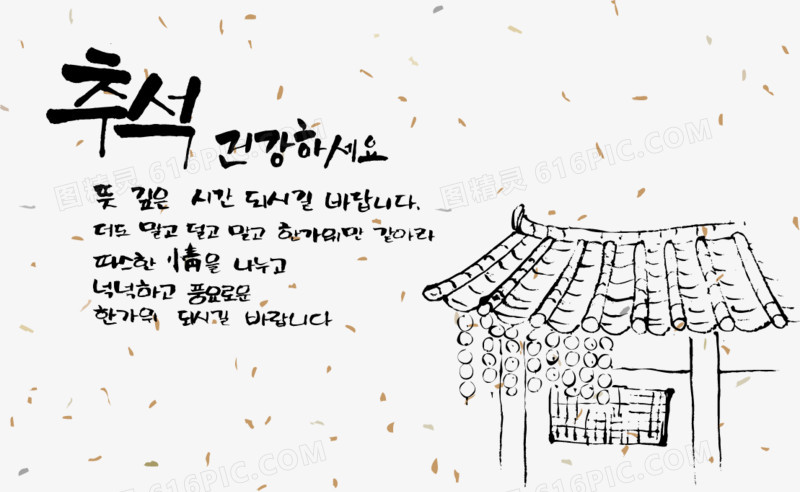 추석 건강하세요
뜻 깊은 시간 되시길 바랍니다.
더도 말고 덜고 말고 한가위만 같아라
따스한 情을 나누고
넉넉하고 풍요로운
한가위 되시길 바랍니다
图精灵 616PIC.COM
图精灵 616PIC.COM
图精灵 616PIC.COM
616PIC.COM